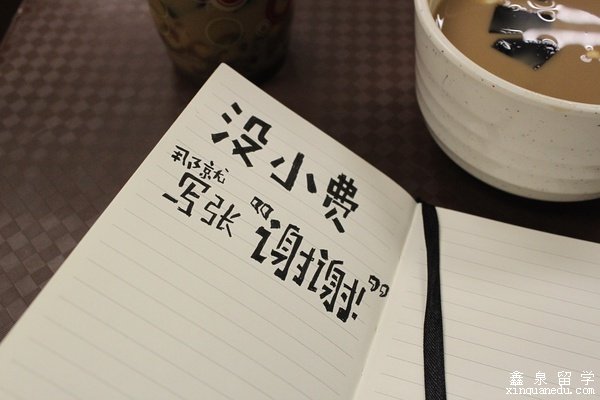 没小费
那就
写张“谢谢”
鑫泉留学
xinquanedu.com